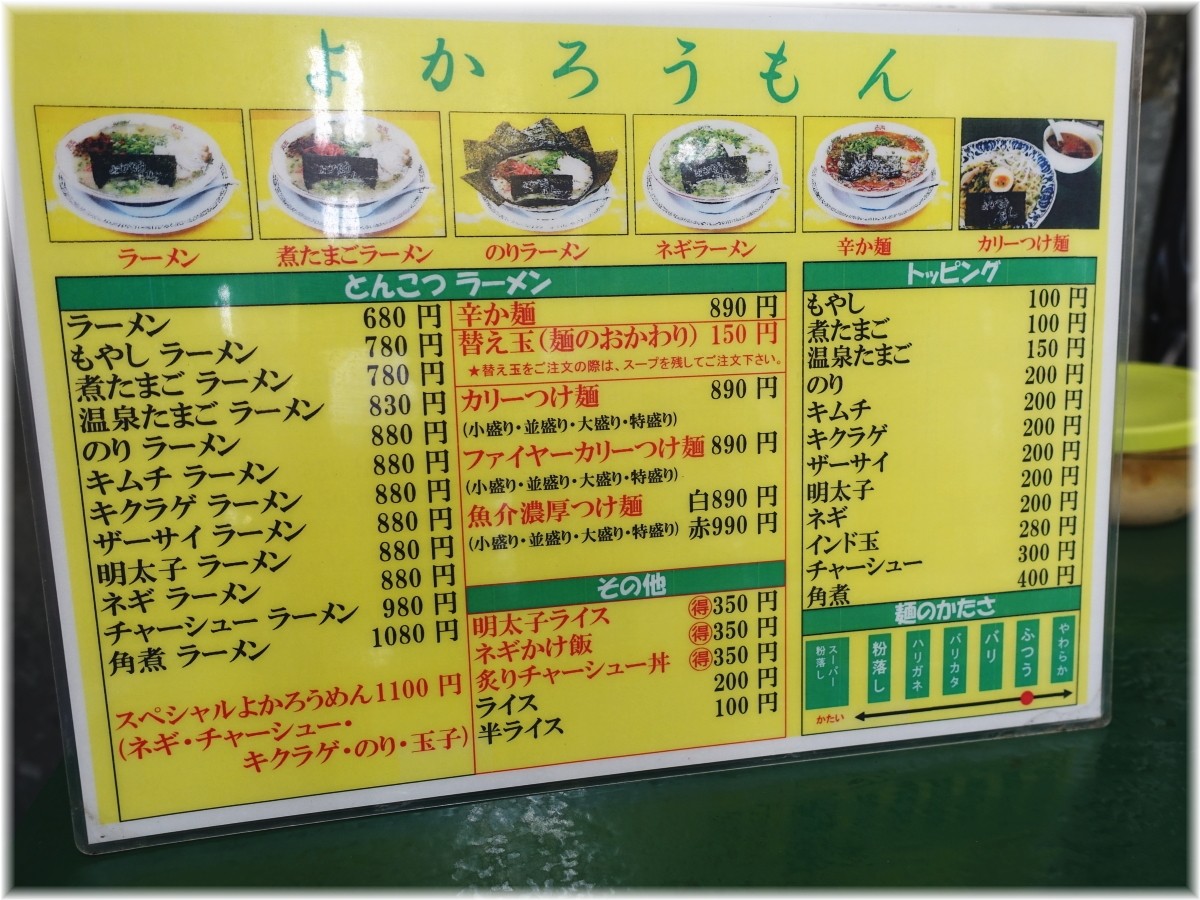 よかろうもん
ラーメン
煮たまごラーメン
のりラーメン
ネギラーメン
辛か麺
カリーつけ麺
とんこつ ラーメン
ラーメン 680 円
もやし ラーメン 780 円
煮たまご ラーメン 780 円
温泉たまご ラーメン 830 円
のり ラーメン 880 円
キムチ ラーメン 880 円
キクラゲ ラーメン 880 円
ザーサイ ラーメン 880 円
明太子 ラーメン 880 円
ネギ ラーメン 880 円
チャーシュー ラーメン 980 円
角煮 ラーメン 1080 円
スペシャルよかろうめん1100 円
(ネギ・チャーシュー・
キクラゲ・のり・玉子)
辛か麺 890 円
替え玉(麺のおかわり) 150 円
★替え玉をご注文の際は、スープを残してご注文下さい。
カリーつけ麺 890 円
(小盛り・並盛り・大盛り・特盛り)
ファイヤーカリーつけ麺 890 円
(小盛り・並盛り・大盛り・特盛り)
魚介濃厚つけ麺 白890 円
(小盛り・並盛り・大盛り・特盛り) 赤990 円
その他
明太子ライス 得350 円
ネギかけ飯 得350 円
炙りチャーシュー丼 得350 円
ライス 200 円
半ライス 100 円
トッピング
もやし 100 円
煮たまご 100 円
温泉たまご 150 円
のり 200 円
キムチ 200 円
キクラゲ 200 円
ザーサイ 200 円
明太子 200 円
ネギ 200 円
インド玉 280 円
チャーシュー 300 円
角煮 400 円
麺のかたさ
スーパー粉落し
粉落し
ハリガネ
バリカタ
バリ
ふつう
やわらか
かたい